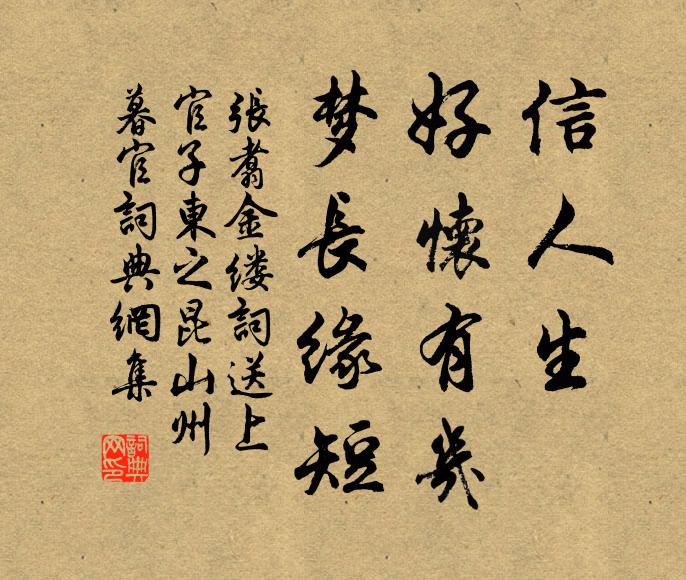 信人生
好懷有幾
梦長緣短
張翥金缕詞送上
官子東之昆山州
暮官詞典網集
詞典网印